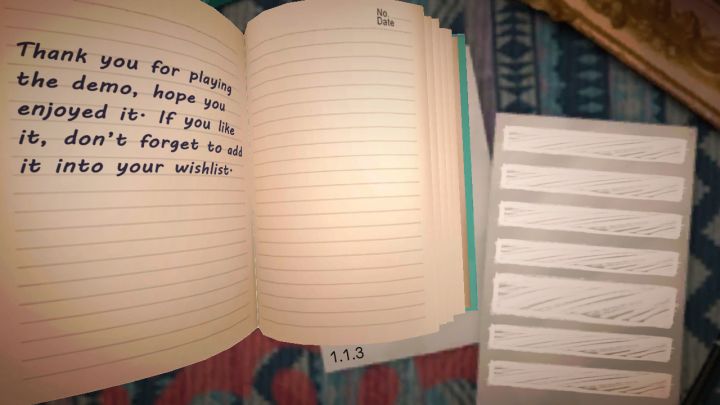 Thank you for playing
the demo, hope you
enjoyed it. If you like
it, don't forget to add
it into your wishlist.
No
Date
1.1.3